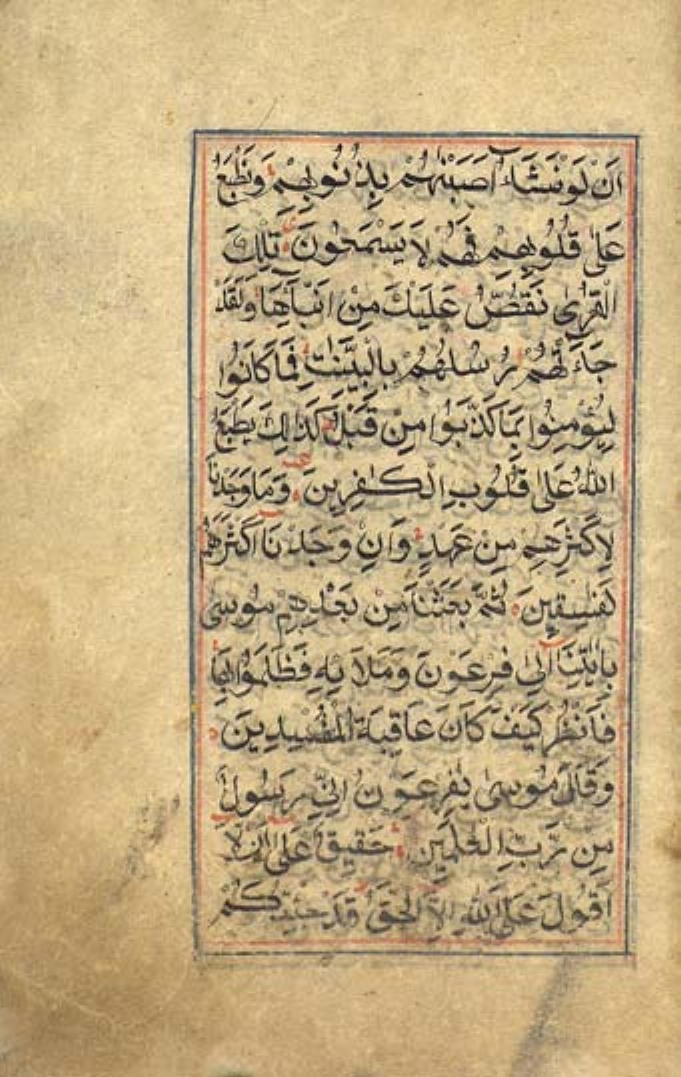 اَنْ لَوْ نَشَاءُ اَصَبْنٰهُمْ بِذُنُوبِهِمْ وَنَطْبَعُ
عَلٰى قُلُوبِهِمْ فَهُمْ لَا يَسْمَعُونَ تِلْكَ
الْقُرٰى نَقُصُّ عَلَيْكَ مِنْ اَنْبَآئِهَا وَلَقَدْ
جَآءَتْهُمْ رُسُلُهُمْ بِالْبَيِّنٰتِ فَمَا كَانُوا
لِيُؤْمِنُوا بِمَا كَذَّبُوا مِنْ قَبْلُ كَذٰلِكَ يَطْبَعُ
اللّٰهُ عَلٰى قُلُوبِ الْكٰفِرِينَ وَمَا وَجَدْنَا
لِاَكْثَرِهِمْ مِنْ عَهْدٍ وَاِنْ وَجَدْنَا اَكْثَرَهُمْ
لَفٰسِقِينَ ثُمَّ بَعَثْنَا مِنْ بَعْدِهِمْ مُوسٰى
بِاٰيٰتِنَا اِلٰى فِرْعَوْنَ وَمَلَا۟ئِهِ فَظَلَمُوا بِهَا
فَانْظُرْ كَيْفَ كَانَ عَاقِبَةُ الْمُفْسِدِينَ
وَقَالَ مُوسٰى يٰفِرْعَوْنُ اِنِّي رَسُولٌ
مِنْ رَبِّ الْعٰلَمِينَ حَقِيقٌ عَلٰى اَنْ لَا
اَقُولَ عَلَى اللّٰهِ اِلَّا الْحَقَّ قَدْ جِئْتُكُمْ